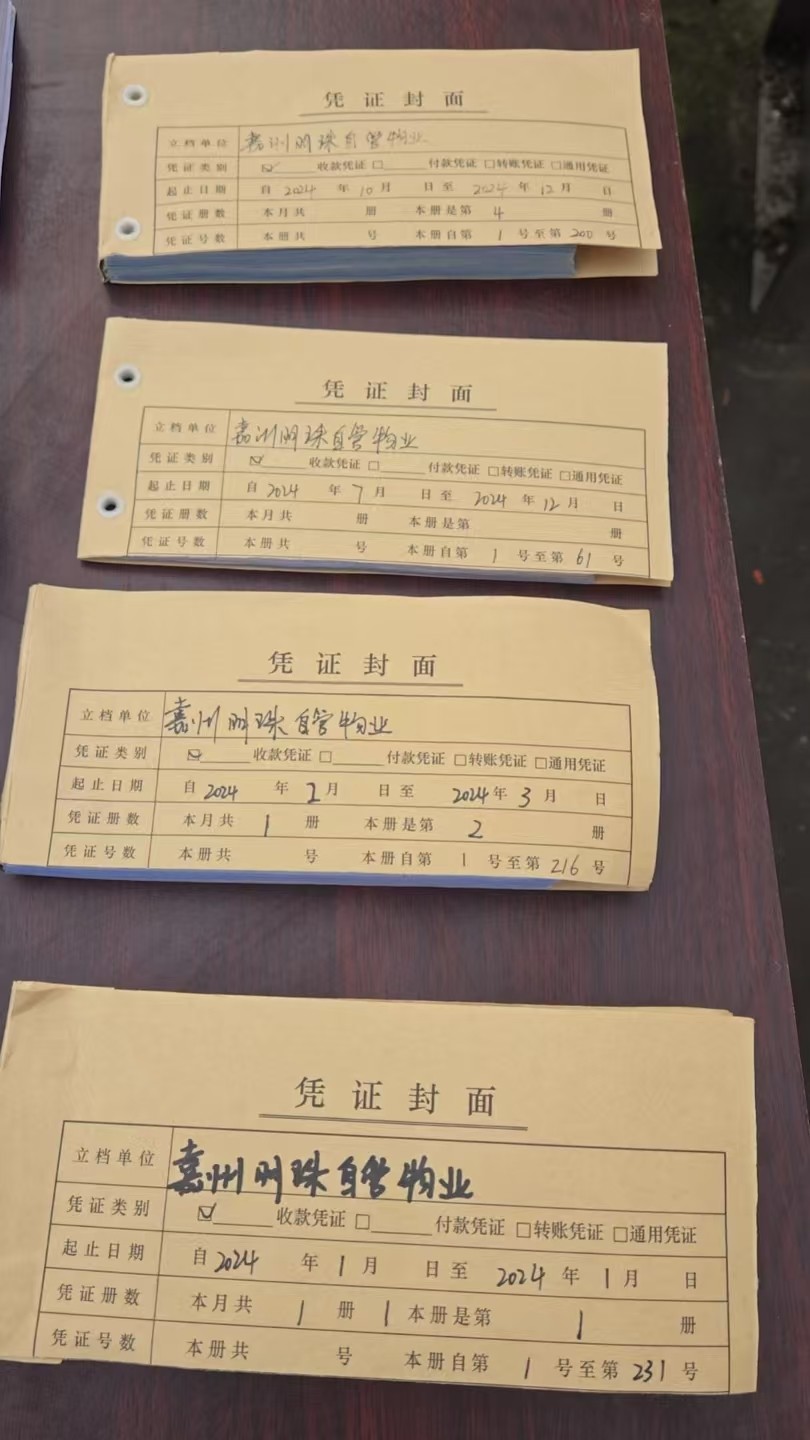 凭证封面
立档单位 嘉州明珠自管物业
凭证类别 ☑______收款凭证 □______付款凭证 □转账凭证 □通用凭证
起止日期 自 2024 年 10 月 日至 2024 年 12 月 日
凭证册数 本月共 册 本册是第 4 册
凭证号数 本册共 号 本册自第 1 号至第 200 号
凭证封面
立档单位 嘉州明珠自管物业
凭证类别 ☑______收款凭证 □______付款凭证 □转账凭证 □通用凭证
起止日期 自 2024 年 7 月 日至 2024 年 12 月 日
凭证册数 本月共 册 本册是第 册
凭证号数 本册共 号 本册自第 1 号至第 61 号
凭证封面
立档单位 嘉州明珠自管物业
凭证类别 ☑______收款凭证 □______付款凭证 □转账凭证 □通用凭证
起止日期 自 2024 年 2 月 日至 2024 年 3 月 日
凭证册数 本月共 1 册 本册是第 2 册
凭证号数 本册共 号 本册自第 1 号至第 216 号
凭证封面
立档单位 嘉州明珠自管物业
凭证类别 ☑______收款凭证 □______付款凭证 □转账凭证 □通用凭证
起止日期 自 2024 年 1 月 日至 2024 年 1 月 日
凭证册数 本月共 1 册 1 本册是第 1 册
凭证号数 本册共 号 本册自第 1 号至第 231 号